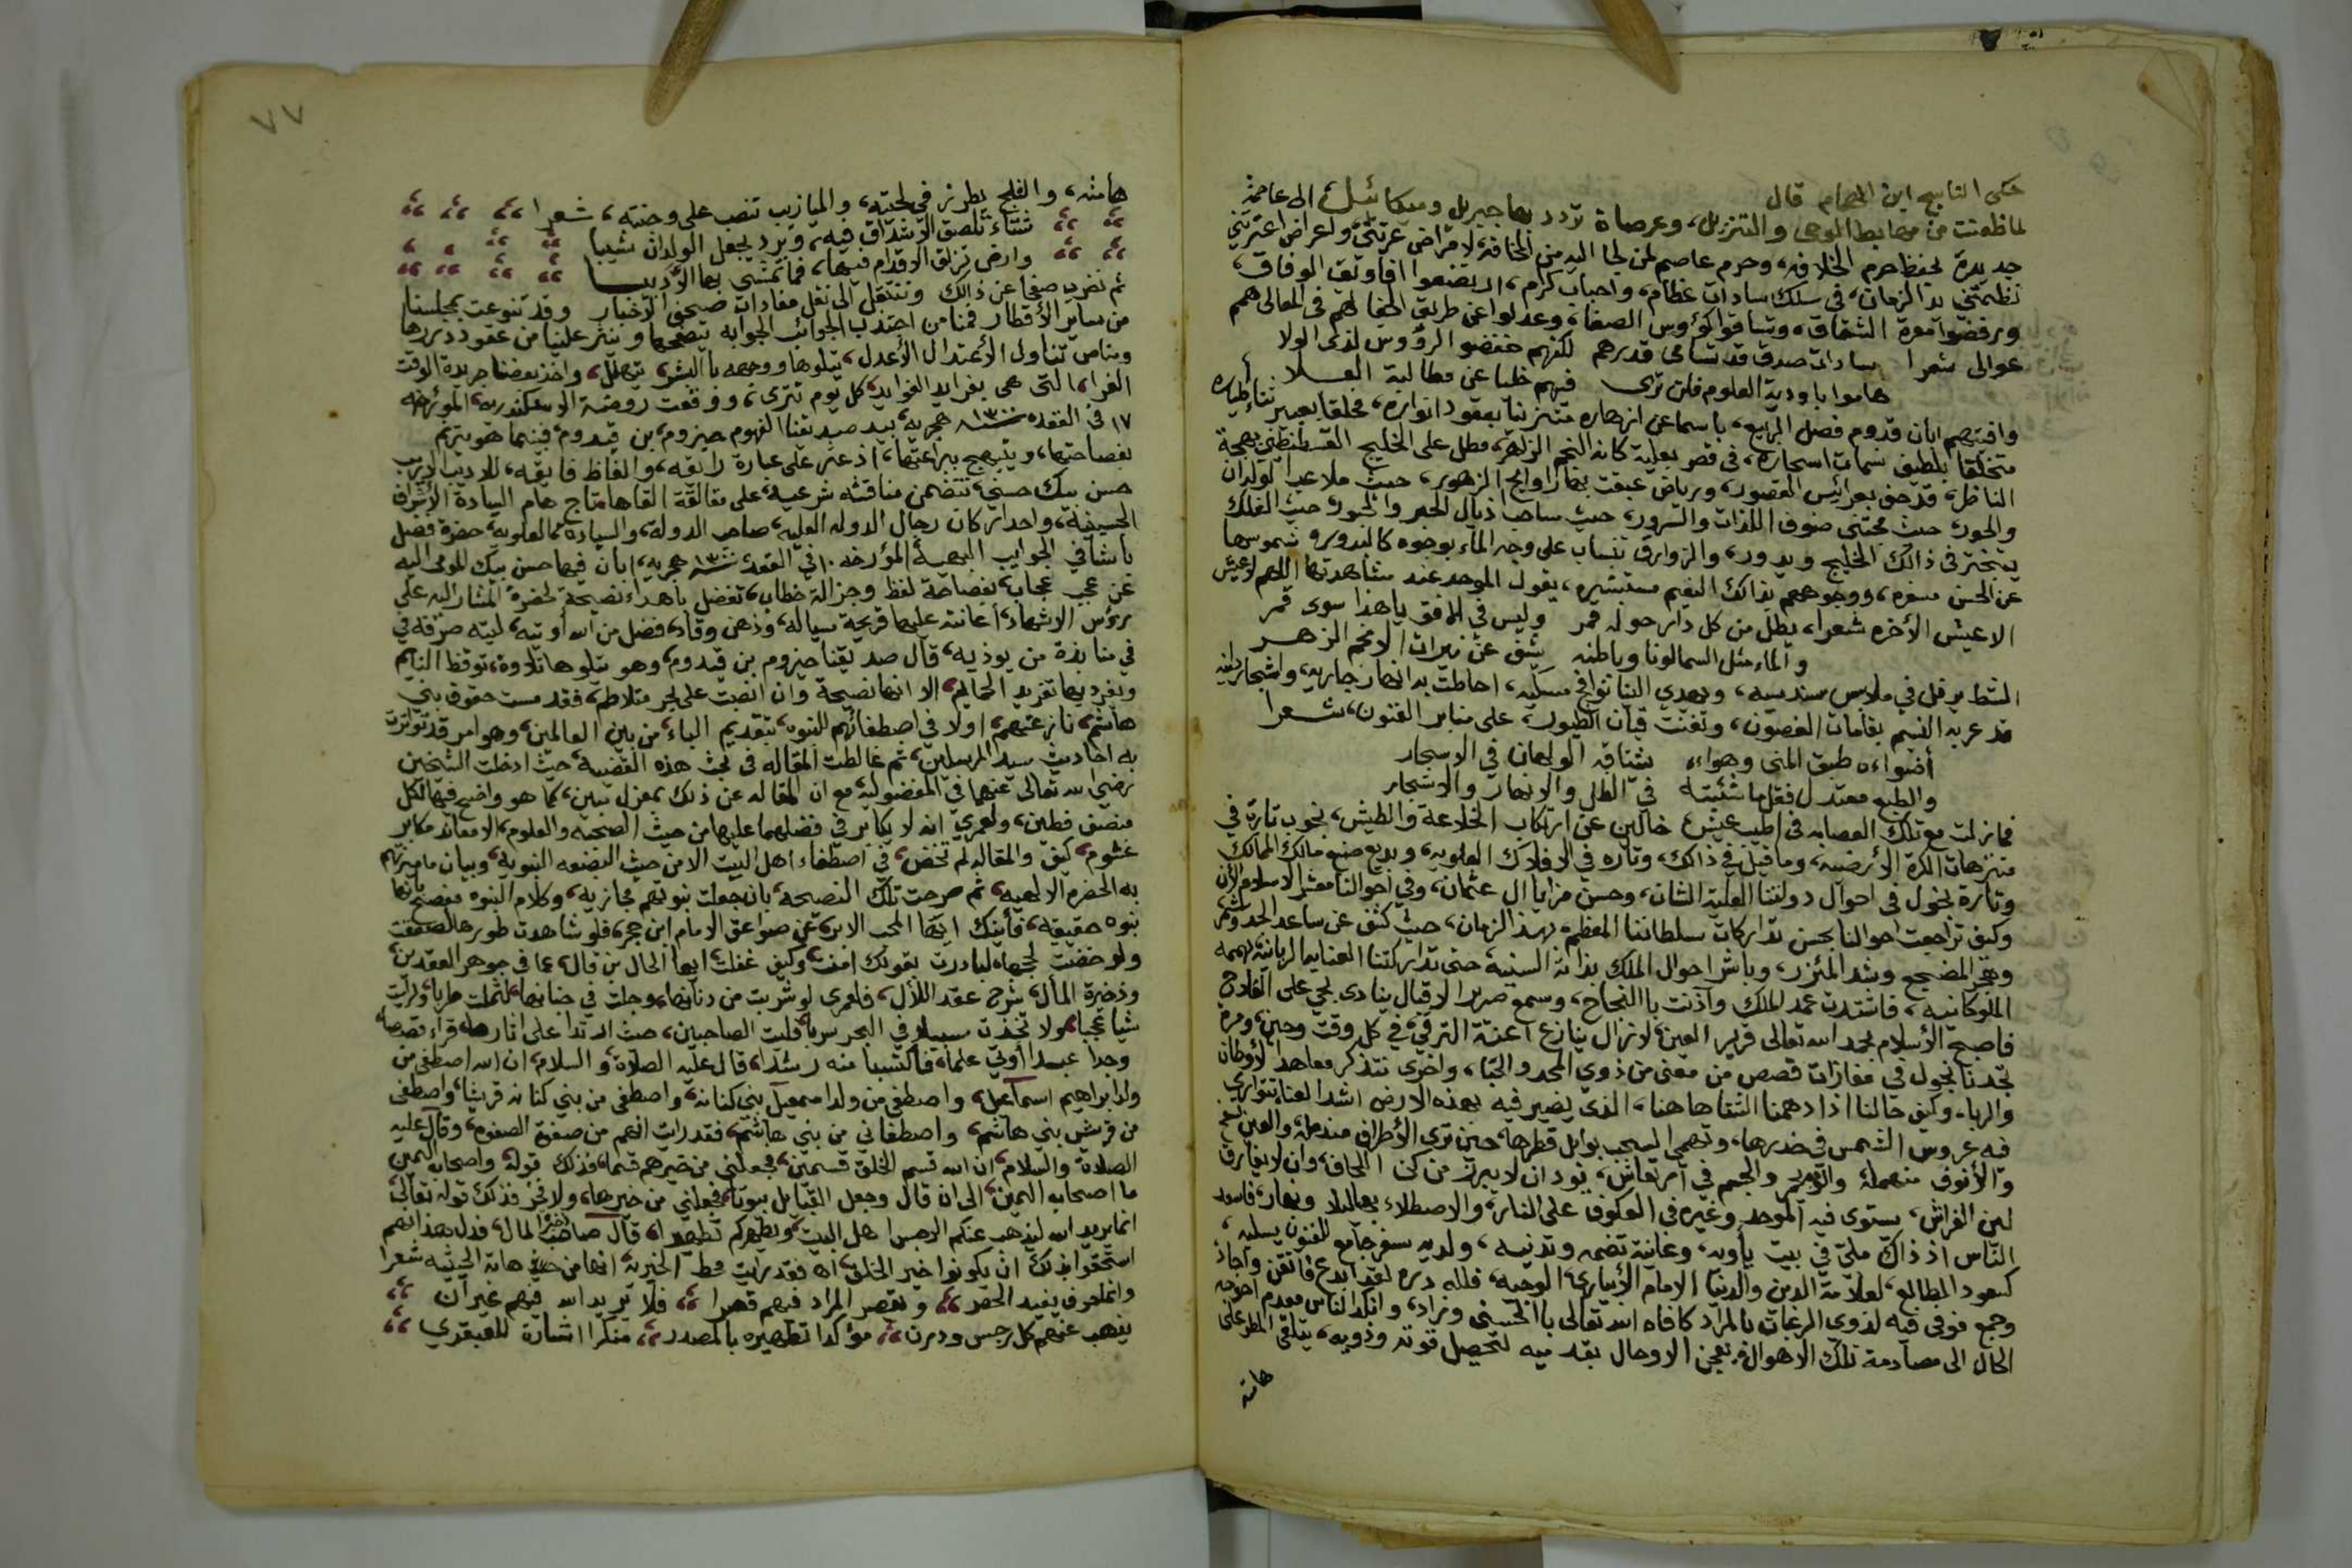 حكى النابيع ابن الهمام قال
لما ظعنت من مهابط الوحي والتنزيل، وعرصاة تردد بها جبريل وميكائيل، الى عاصمة
جديرة بحفظ حرم الخلافه، وحرم عاصم لمن لجا اليه من المخافه، لامراض عرتني، ولعراض اعترتني
نظمتني يد الزمان، في سلك سادات عظام، واحباب كرام، ارتضعوا افاويق الوفاق،
ورفضوا معرة الشقاق، وتساقوا كؤوس الصفاء، وعدلوا عن طريق الجفا لهم في المعالي همم
عوالى شعرا سادات صدق قد تسامى قدرهم لكنهم خفضو الرؤوس لذى الولا
هاموا باودية العلوم فلن ترى فيهم خليا عن مطالبة العلا
وافيتهم ابان قدوم فصل الربيع، باسما عن ازهاره متزينا بعقود انواره، مخلقا بعبير
متخلقا بلطيف نسمات اسحاره، في قصر بعلية كانه النجم الزاهر، مطل على الخليج القسطنطني بهجة
الناظر، قد حف بعرائس القصور، ورياض عبقت بها روايح الزهور، حيث ملاعب الولدان
والحور، حيث مجتنى صنوف اللذات والسرور، حيث ساحب اذيال الحبر والحبور، حيث الفلك
يتبختر في ذالك الخليج ويدور، والزوارق تنساب على وجه الماء بوجوه كالبدور و شموسها
عن الحسن مسفره، ووجوههم بذاك النعيم مستبشره، يقول الموحد عند مشاهدتها اللهم لا عيش
الا عيش الأخره شعرا، يطل من كل دار حوله قمر وليس في الافق يا هذا سوى قمر
والماء مثل السما لونا وباطنه يشف عن نيرات الانجم الزهر
الشط يرفل في ملابس سندسيه، ويهدي الينا نوافج مسكيه، احاطت به انهار جاريه، واشجار
قد عربد النسيم بقامات الغصون، وتغنت قيان الطيور، على منابر الفنون، شعرا
أضواءه طبق المنى وهواءه يشتاقه الولهان في الاسحار
والطبع معتدل فقل ما شئته في الظل والانهار والاشجار
فما زلت مع تلك العصابه في اطيب عيش، خالين عن ارتكاب الخلاعة والطيش، نجوب تارة في
متنزهات الكرة الأرضيه، وما قيل في ذالك، وتاره في الافلاك العلويه، وبديع صنع مالك الممالك
وتارة نجول في احوال دولتنا العلية الشان، وحسن مزايا ال عثمان، وفي احوالنا معشر الاسلام الأن
وكيف تراجعت احوالنا بحسن تداركات سلطاننا المعظم، بهذا الزمان، حيث كشف عن ساعد الجد وشمر
وهجر المضجع وشد المئزر، وباشر احوال الملك بذاته السنيه، حتى تداركتنا العنايه الربانيه بهممه
الملوكانيه، فاشتدت عمد الملك وآذنت باالنجاح، وسمع صرير الاقبال ينادى بحي على الفلاح
فاصبح الأسلام بحمد الله تعالى قرير العين، لا تزال ينازع اعنة الترقي، في كل وقت وحين، ومرة
تجدنا نجول في مفازات قصص من مضى من ذوي المجد والحبا، واخرى نتذكر معاهد الأوطان
والربا، وكيف حالنا اذا دهمنا الشتاء هاهنا، الذي يضير فيه بهذه الارض اشد العنا، تتوارى
فيه عروس الشمس في خدرها، وتهمى السحب بوابل قطرها، حين ترى الأطراف مندمله، والعين
والأنوف منهملة والجسم في ارتعاش، يود ان لا يبرز من كن اللحاف، وان لا يفارق
لين الفراش، يستوى فيه الموحد وغيره في العكوف على النار، والاصطلاء بها ليلا ونهار،
النّاس اذ ذاك ملئ في بيت يأويه، وغانية تضمه وتدنيه، ولديه سفر جامع للفنون يسليه،
كسعود المطالع، لعلامة الدين والدنيا الامام الأبياري، الوجيه، فلله دره لقد ابدع فاتقن واجاد
وجمع فوفى فيه لذوي الرغبات بالمراد كافاه الله تعالى باالحسنى وزاد، وانكد الناس معدم احوجه
الحال الى مصادمة تلك الاهوال، يعجن الاوحال بقدميه لتحصيل قوته وذويه، يتلقى المطر على
هامته
٧٧
هامته، والثلج يطرز في لحيته، والميازيب تنصب على وجنته، شعرا
شتاء تلصق الاشداق فيه، وبرد يجعل الولدان شيبا
وارض تزلق الاقدام فيها، فما تمشي بها الأدبيبا
ثم نضرب صفحا عن ذالك وننتقل الى نقل مفادات صحف الأخبار وقد تنوعت بمجلسنا
من ساير الأقطار فمنا من اجتذب الجوائب الجوابه يتصفحها وينثر علينا من عقود دررها
ومنا من تناول الأعتدال الأعدل، يتلوها ووجهه باالبشر يتهلل، واخذ بعضنا جريدة الوقت
الغرا، التى هي بفرايد الفوايد، كل يوم تترى، ووقعت روضة الاسكندريه، المؤرخه
١٧ في القعده سنة ١٣٠٠ هجريه، بيد صديقنا الفهوم حيزوم، بن قيدوم، فبينما هو يترنم
بفصاحتها، ويبتهج ببراعتها، اذ عثر على عبارة رايقه، والفاظ فايقه، للاديب الاريب
حسن بيك حسني، تتضمن مناقشه شرعيه، على مقالة القاها تاج هام السادة الأشراف
الحسينية، واحد اركان رجال الدوله العليه، صاحب الدولة، والسيادة، العلويه، حضرة فضل
باشا في الجوايب البهية المؤرخه ١٠ في القعد سنة ١٣٠٠ هجريه، ابان فيها حسن بيك المومى اليه
عن عجب عجاب، بفصاحة لفظ وجزالة خطاب، تفضل باهداء نصيحة لحضرة المشار اليه على
رؤس الاشهاد، اعانته عليها قريحة سياله، وذهن وقاد، فضل من الله اوتيه، ليته صرفه في
في منابذة من يوذيه، قال صديقنا حيزوم بن قيدوم، وهو يتلوها تلاوة، توقظ النايم
ويغرد بها تغريد الحمايم، الا انها نصيحة وان انصت على بحر متلاطم، فقد مست حقوق بني
هاشم، نازعتهم، اولا في اصطفائهم للنبوه، بتقديم الباء، من بين العالمين، وهو امر قد تواترت
به احاديث سيد المرسلين، ثم غالطت المقاله في بحث هذه القضيه، حيث ادخلت الشيخين
رضي الله تعالى عنهما في المفضوليه، مع ان المقاله عن ذلك بمعزل مبين، كما هو واضح فيها لكل
منصف فطين، ولعمري انه لا يكابر في فضلهما عليها من حيث الصحبه والعلوم، الا معاند مكابر
غشوم، كيف والمقاله لم تخض، في اصطفاء اهل البيت الا من حيث البضعه النبويه، وبيان ما ميزتهم
به الحضره الالهيه، ثم صرحت تلك النصيحه، بان جعلت نبوتهم مجازيه، وكلام النبوه مفصح بأنها
بنوه حقيقيه، فأينك ايها المحب الابر، عن صواعق الامام ابن حجر، فلو شاهدت طورها لصعقت
ولو خضت لججها، لبادرت بقولك امنت، وكيف غفلت ايها الحال بن قال، عما في جوهر العقدين،
وذخيرة المأل، شرح عقد اللأل، فلعمرى لو شربت من دنانها، وجلت في جنانها، لثملت طربا، ولرايت
شيا عجبا، ولا تخذت سبيلا في البحر سربا، فليت الصاحبين، حيث ارتدا على اثارهما، قراء قصصا،
وجدا عبدا أوتي علما، فأكتسبا منه رشدا، قال عليه الصلاة، والسلام، ان الله اصطفى من
ولد ابراهيم اسمآعيل، واصطفى من ولد اسمعيل بني كنانه، واصطفى من بني كنانه قريشا، واصطفى
من قريش بني هاشم، واصطفاني من بني هاشم، فقد رات انهم من صفوة الصفوه، وقال عليه
الصلاة والسلام، ان الله قسم الخلق قسمين، فجعلني من خيرهم قسما، فذلك قوله واصحاب اليمين
ما اصحاب اليمين، الى ان قال وجعل القبايل بيوتا، فجعلني من خيرها، ولا فخر فذلك قوله تعالى،
انما يريد الله ليذهب عنكم الرجس اهل البيت، ويطهركم تطهيرا، قال صاحب ذخيرة المال، فدل هذا انهم
استحقوا بذلك ان يكونوا خير الخلق، اه فقد رايت محط الخيريه، انها من حيث هاته الحيثيه شعرا
وانما حرف يفيد الحصر، ويقصر المراد فيهم قهرا، فلا يريد الله فيهم غير ان
يذهب عنهم كل رجس ودرن، مؤكدا تطهيره بالمصدر، منكرا اشارة للعبقري